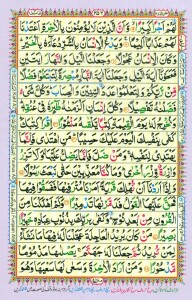 لَهُمْ اَجْرًا كَبِيْرًا وَّاَنَّ الَّذِيْنَ لَا يُؤْمِنُوْنَ بِالْاٰخِرَةِ اَعْتَدْنَا
لَهُمْ عَذَابًا اَلِيْمًا وَيَدْعُ الْاِنْسَانُ بِالشَّرِّ دُعَآءَهٗ بِالْخَيْرِ
وَكَانَ الْاِنْسَانُ عَجُوْلًا وَجَعَلْنَا الَّيْلَ وَالنَّهَارَ اٰيَتَيْنِ
فَمَحَوْنَآ اٰيَةَ الَّيْلِ وَجَعَلْنَآ اٰيَةَ النَّهَارِ مُبْصِرَةً لِّتَبْتَغُوْا فَضْلًا
مِّنْ رَّبِّكُمْ وَلِتَعْلَمُوْا عَدَدَ السِّنِيْنَ وَالْحِسَابَ وَكُلَّ شَيْءٍ
فَصَّلْنٰهُ تَفْصِيْلًا وَكُلَّ اِنْسَانٍ اَلْزَمْنٰهُ طٰٓئِرَهٗ فِيْ عُنُقِهٖ
وَنُخْرِجُ لَهٗ يَوْمَ الْقِيٰمَةِ كِتٰبًا يَّلْقٰىهُ مَنْشُوْرًا اِقْرَاْ كِتٰبَكَ
كَفٰى بِنَفْسِكَ الْيَوْمَ عَلَيْكَ حَسِيْبًا مَنِ اهْتَدٰى فَاِنَّمَا
يَهْتَدِيْ لِنَفْسِهٖ وَمَنْ ضَلَّ فَاِنَّمَا يَضِلُّ عَلَيْهَا وَلَا تَزِرُ
وَازِرَةٌ وِّزْرَ اُخْرٰى وَمَا كُنَّا مُعَذِّبِيْنَ حَتّٰى نَبْعَثَ رَسُوْلًا
وَاِذَآ اَرَدْنَآ اَنْ نُّهْلِكَ قَرْيَةً اَمَرْنَا مُتْرَفِيْهَا فَفَسَقُوْا
فِيْهَا فَحَقَّ عَلَيْهَا الْقَوْلُ فَدَمَّرْنٰهَا تَدْمِيْرًا وَكَمْ اَهْلَكْنَا
مِنَ الْقُرُوْنِ مِنْ بَعْدِ نُوْحٍ وَكَفٰى بِرَبِّكَ بِذُنُوْبِ عِبَادِهٖ خَبِيْرًا
بَصِيْرًا مَنْ كَانَ يُرِيْدُ الْعَاجِلَةَ عَجَّلْنَا لَهٗ فِيْهَا مَا نَشَآءُ
لِمَنْ نُّرِيْدُ ثُمَّ جَعَلْنَا لَهٗ جَهَنَّمَ يَصْلٰىهَا مَذْمُوْمًا
مَّدْحُوْرًا وَمَنْ اَرَادَ الْاٰخِرَةَ وَسَعٰى لَهَا سَعْيَهَا وَهُوَ